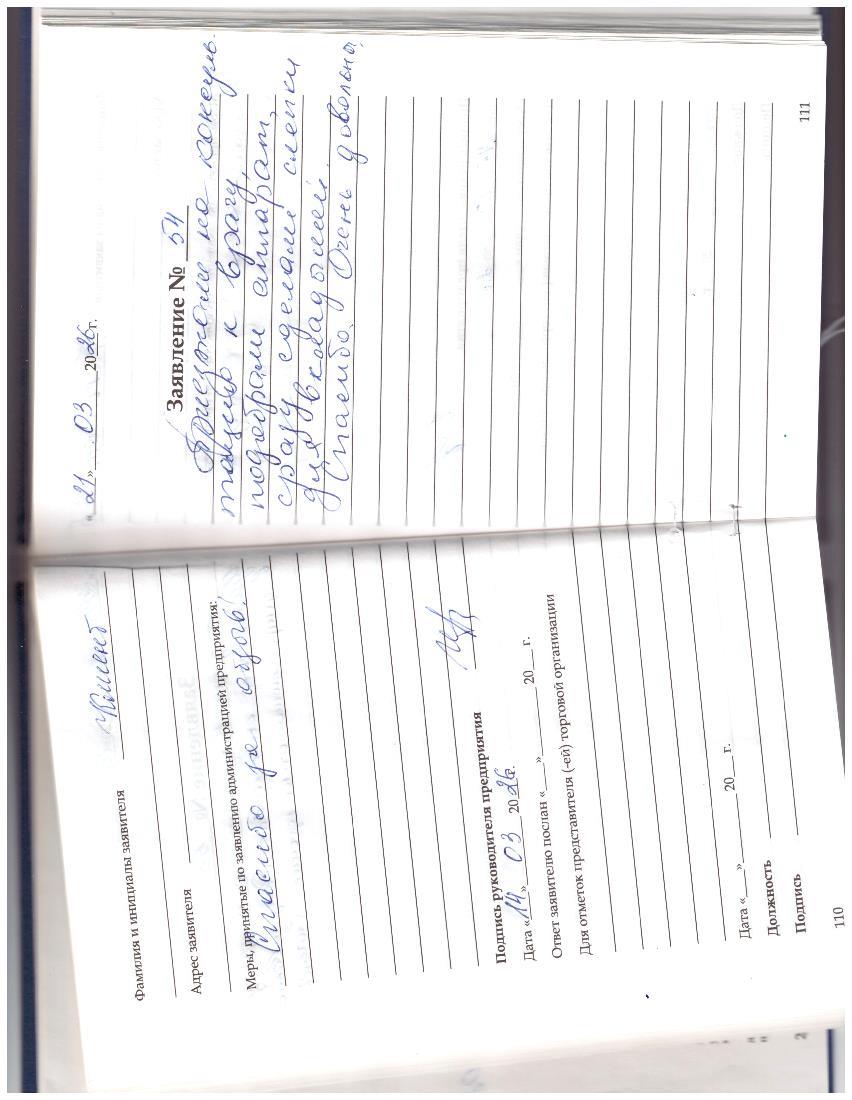 Фамилия и инициалы заявителя Клиент
Адрес заявителя
Меры, принятые по заявлению администрацией предприятия:
Спасибо за отзыв!
Подпись руководителя предприятия
Дата «14» 03 2026.
Ответ заявителю послан «___» ______ 20__ г.
Для отметок представителя (-ей) торговой организации
Дата «___» ______ 20__ г.
Должность
Подпись
110
«21» 03 2026г.
Заявление № 54
Приезжали на консуль
тацию к врачу,
подобрали аппарат,
сразу сделали слепки
для вкладышей.
Спасибо. Очень довольны!
111